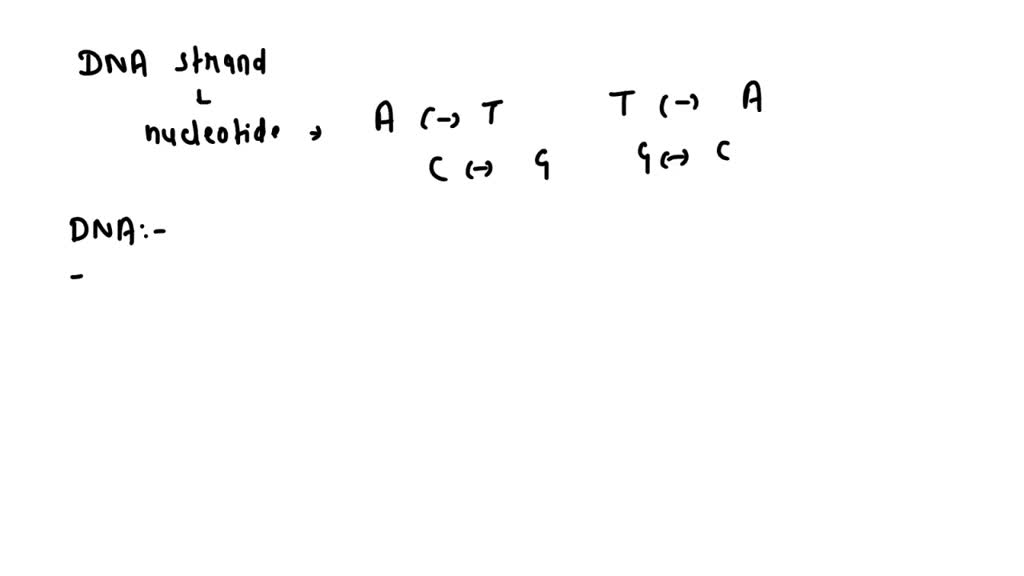 DNA strand
nucleotide → A ↔ T T ↔ A
C ↔ G G ↔ C
DNA:-
-